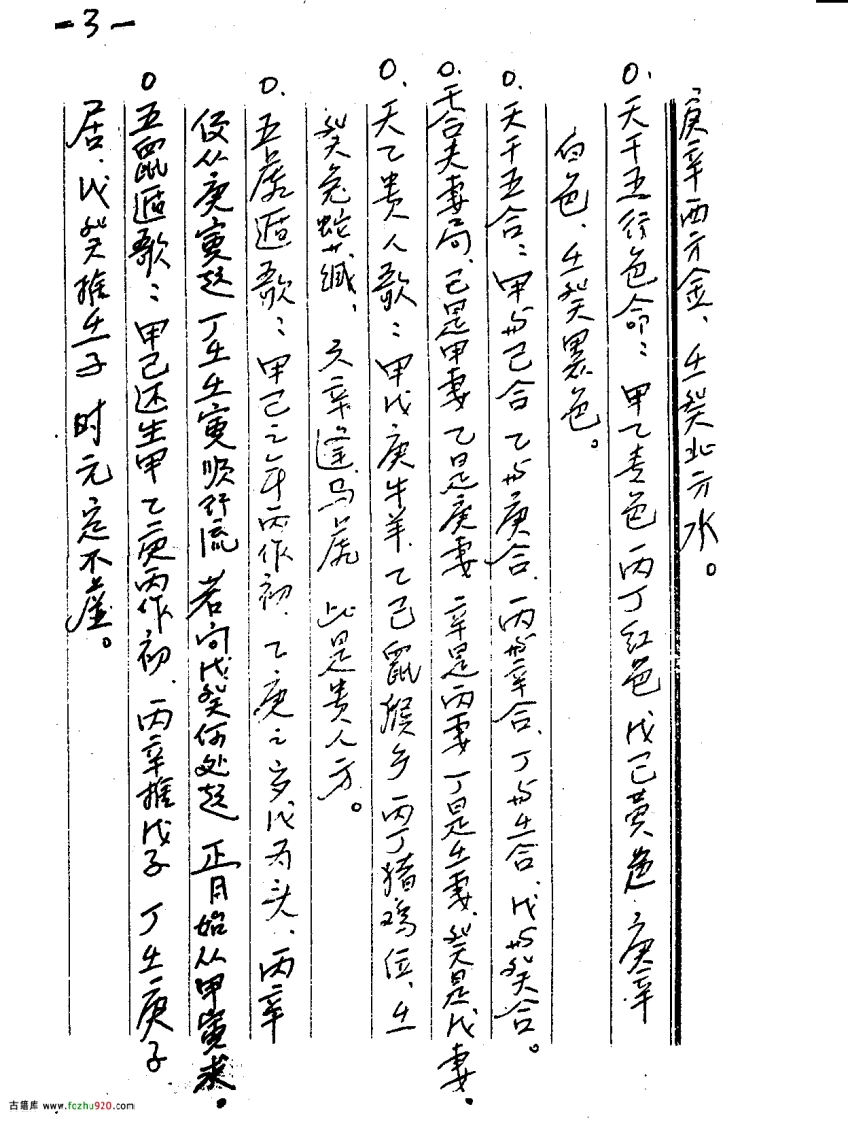 -3-
庚辛西方金、壬癸北方水。
0.天干五行色命：甲乙青色 丙丁红色 戊己黄色 庚辛
白色、壬癸黑色。
0.天干五合：甲与己合 乙与庚合、丙与辛合、丁与壬合、戊与癸合。
0.天合夫妻局、己是甲妻 乙是庚妻 辛是丙妻 丁是壬妻、癸是戊妻。
0.天乙贵人歌：甲戊庚牛羊、乙己鼠猴乡 丙丁猪鸡位、壬
癸兔蛇藏、六辛逢马虎 此是贵人方。
0.五虎遁歌：甲己之年丙作初、乙庚之岁戊为头、丙辛
便从庚寅起 丁壬壬寅顺行流 若问戊癸何处起 正月始从甲寅求。
0五鼠遁歌：甲己还生甲 乙庚丙作初、丙辛推戊子 丁壬庚子
居、戊癸推壬子 时元定不虚。
古籍库 www.fczhu920.com